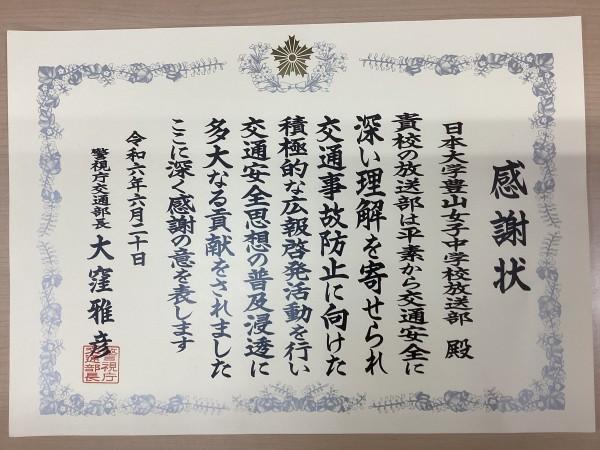 感謝状
日本大学豊山女子中学校放送部 殿
貴校の放送部は平素から交通安全に
深い理解を寄せられ
交通事故防止に向けた
積極的な広報啓発活動を行い
交通安全思想の普及浸透に
多大なる貢献をされました
ここに深く感謝の意を表します
令和六年六月二十日
警視庁交通部長 大窪雅彦
警視庁
交通部長